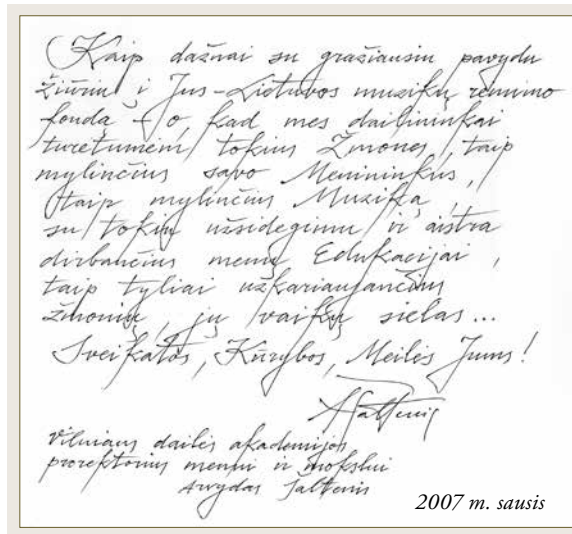 Kaip dažnai su gražiausiu pavydu
žiūriu į Jus – Lietuvos muzikų rėmimo
fondą – o, kad mes dailininkai
turėtumėm tokius Žmones, taip
mylinčius savo Menininkus,
taip mylinčius Muziką,
su tokiu užsidegimu ir aistra
dirbančius menų Edukacijai,
taip tyliai užkariaujančius
žmonių, jų vaikų sielas...
Sveikatos, Kūrybos, Meilės Jums!
AŠaltenis
Vilniaus dailės akademijos
prorektorius menui ir mokslui
Arvydas Šaltenis
2007 m. sausis